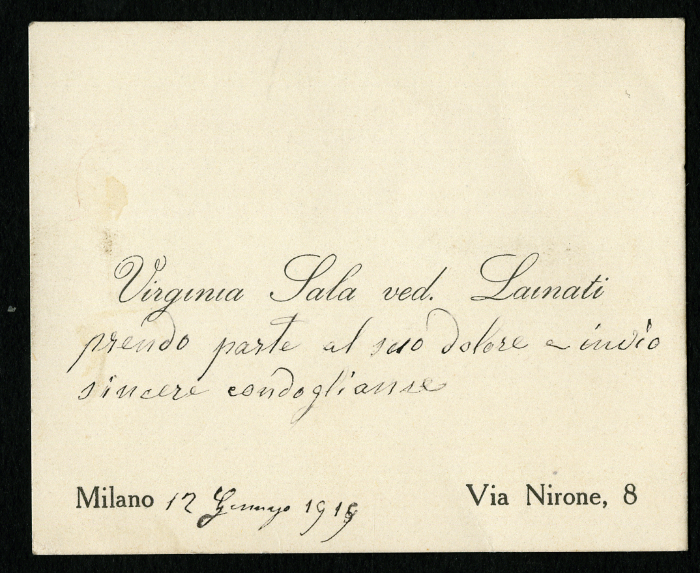 Virginia Sala ved. Lainati
prendo parte al suo dolore e invio
sincere condoglianse
Milano 12 Gennajo 1919 Via Nirone, 8